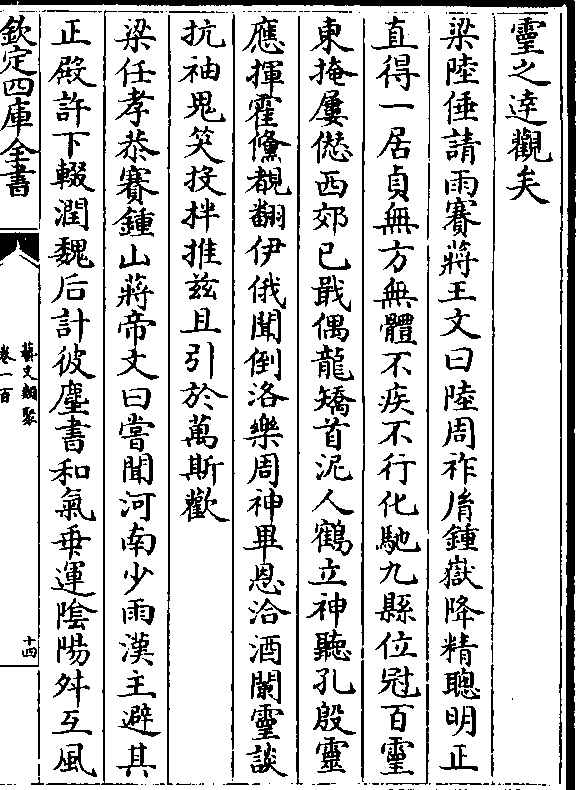 靈之逹觀矣
梁陸倕請雨賽蔣王文曰陸周祚胤鍾嶽降精聰明正
直得一居貞無方無體不疾不行化馳九縣位冠百靈
東掩屢僽西郊已戢偶龍矯首泥人鶴立神聽孔殷靈
應揮霍儵覩翻伊俄聞倒洛樂周神畢恩洽酒闌靈談
抗袖鬼笑投柈推兹且引於萬斯歡
梁任孝恭賽鍾山蔣帝文曰嘗聞河南少雨漢主避其
正殿許下輟潤魏后計彼塵書和氣乗運隂陽舛互風
欽定四庫全書
藝文類聚
卷一百
十四